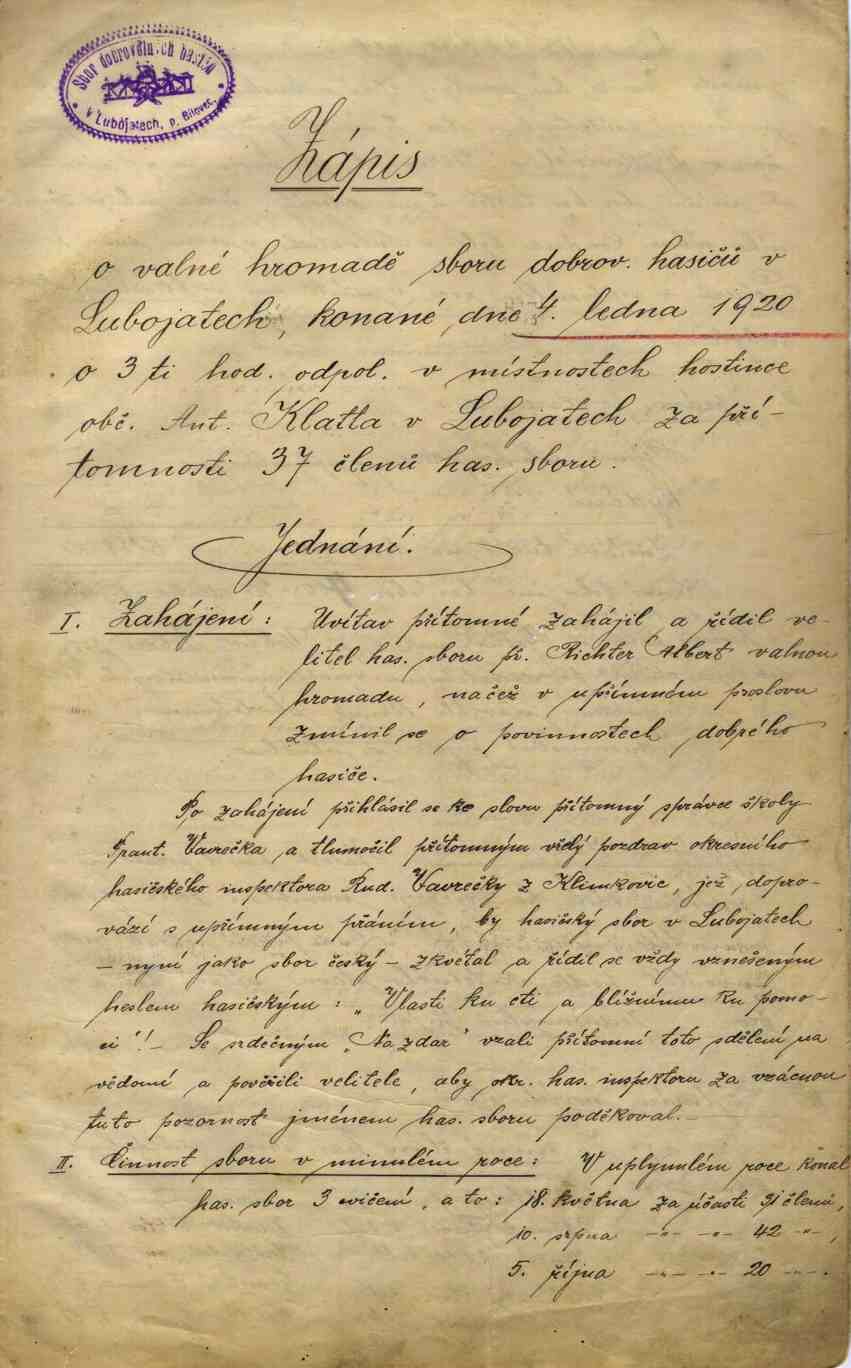 Sbor dobrovolných hasičů
v Lubojatech, p. Bílovec.
Zápis
o valné hromadě sboru dobrov. hasičů v
Lubojatech, konané dne 4. ledna 1920
o 3 ti hod. odpol. v místnostech hostince
obč. Ant. Klatta v Lubojatech za pří-
tomnosti 37 členů has. sboru.
Jednání.
I. Zahájení: Uvítav přítomné zahájil a řídil ve-
litel has. sboru p. Richter Albert valnou
hromadu, načež v upřímném proslovu
zmínil se o povinnostech dobrého
hasiče.
Po zahájení přihlásil se ke slovu přítomný správce školy
Frant. Vavrečka a tlumočil přítomným vřelý pozdrav okresního
hasičského inspektora Rud. Vavrečky z Klimkovic, jež dopro-
vází s upřímným přáním, by hasičský sbor v Lubojatech
– nyní jako sbor český – zkvétal a řídil se vždy vznešeným
heslem hasičským: „Vlasti ku cti a bližnímu ku pomo-
ci"! – Se srdečným „Na zdar" vzali přítomní toto sdělení na
vědomí a pověřili velitele, aby okr. has. inspektoru za vzácnou
tuto pozornost jménem has. sboru poděkoval. –
II. Činnost sboru v minulém roce: V uplynulém roce konal
has. sbor 3 cvičení, a to: 18. května za účasti 31 členů,
10. srpna -"- -"- 42 -"-,
5. října -"- -"- 20 -"-.